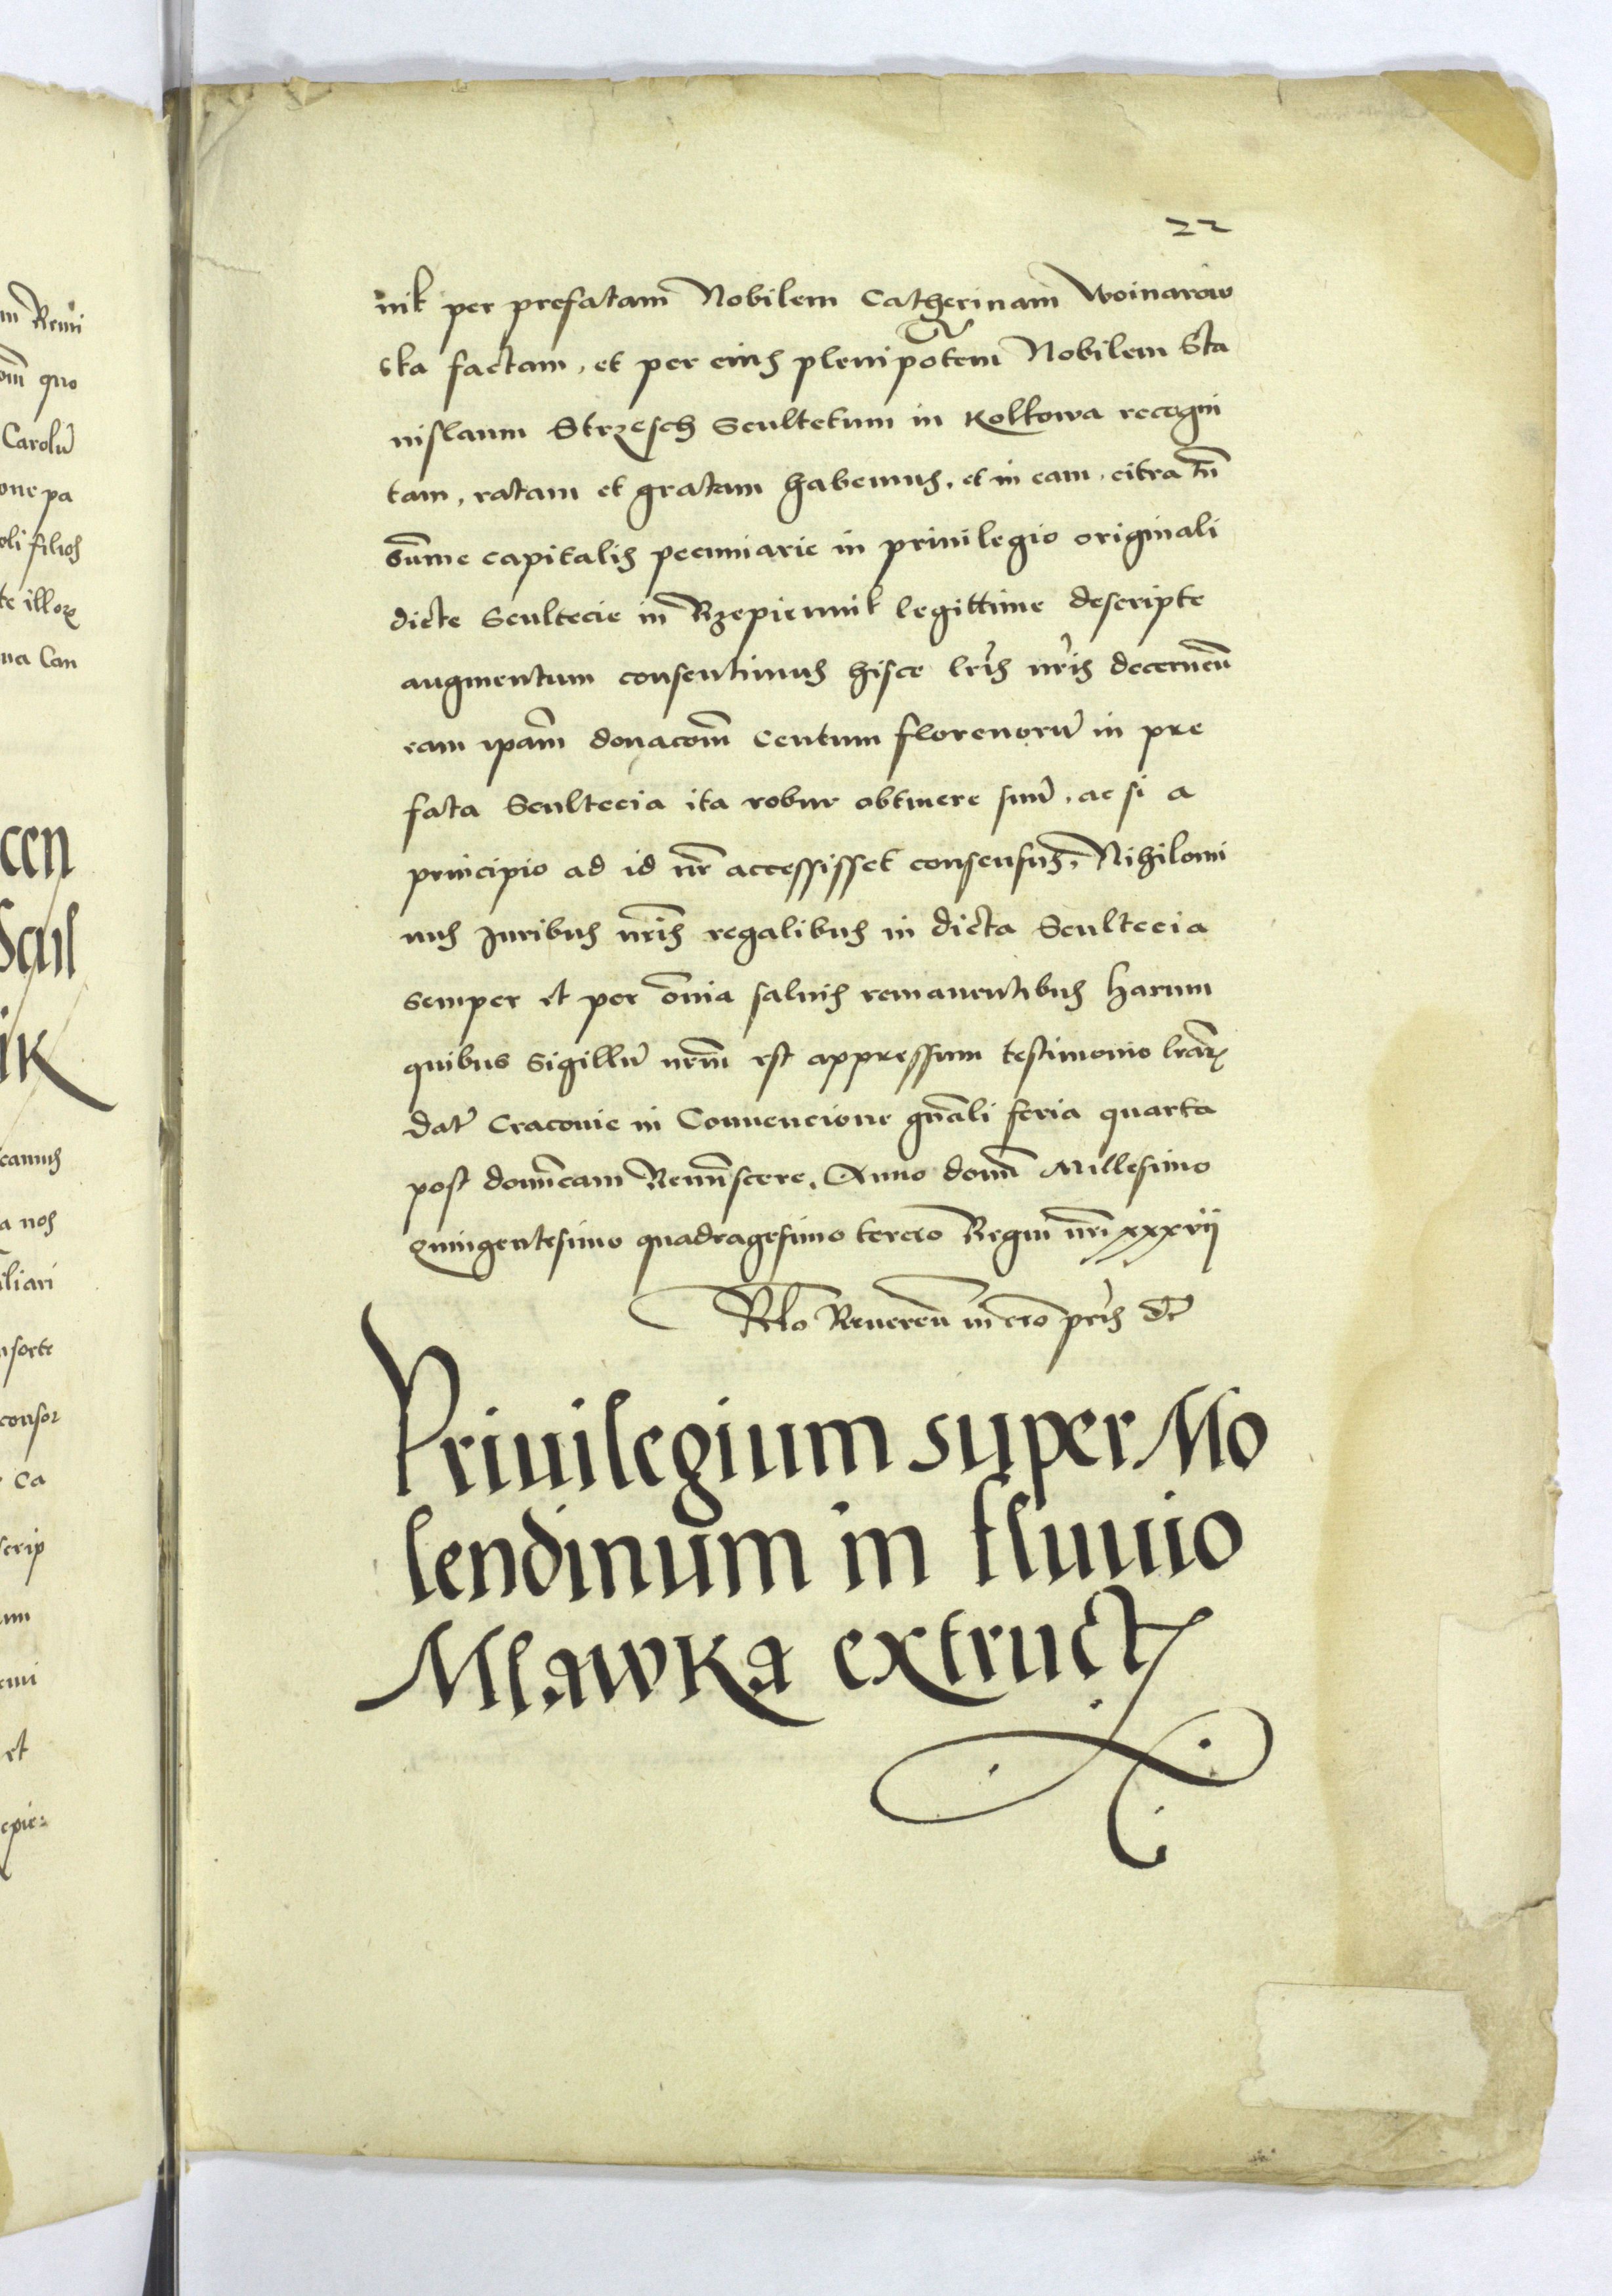 22
nik per prefatam Nobilem Catherinam Woinarow
ska factam, et per eius plenipotem Nobilem Sta
nislaum Strzesch Scultetum in Kolkowa recogni
tam, ratam et gratam habemus, et in eam, citra tn̄
sum̄e capitalis pecuniarie in priuilegio originali
dicte Scultecie in Rzepiennik legittime descripte
augmentum consentimus hisce lr̄is nr̄is decernen̄
eam ipam̄ donacōm centum florenorū in pre
fata Scultecia ita robur obtinere suū, ac si a
principio ad id nr̄ accessisset consensus, Nihilomi
nus Juribus nr̄is regalibus in dicta Scultecia
semper et per om̄ia saluis remanentibus harum
quibus Sigillū nr̄m est appressum testimonio lr̄arꝝ
dat̄ Cracouie in Conuencione gn̄ali feria quarta
post domīcam Remīscere, Anno domī Millesimo
Quingentesimo quadragesimo tercio Regni nr̄i xxxvij
Rlo Reueren̄ in cro pr̄is d̄
Priuilegium super Mo
lendinum in fluuio
Mlawka extruct
m Remi
om̄ quo
Carolū
one pa
oli filios
te illorꝝ
ua Can
cen
Scul
ik
camus
a nos
iliari
nsorte
consor
Ca
scrip
um
emi
et
epie